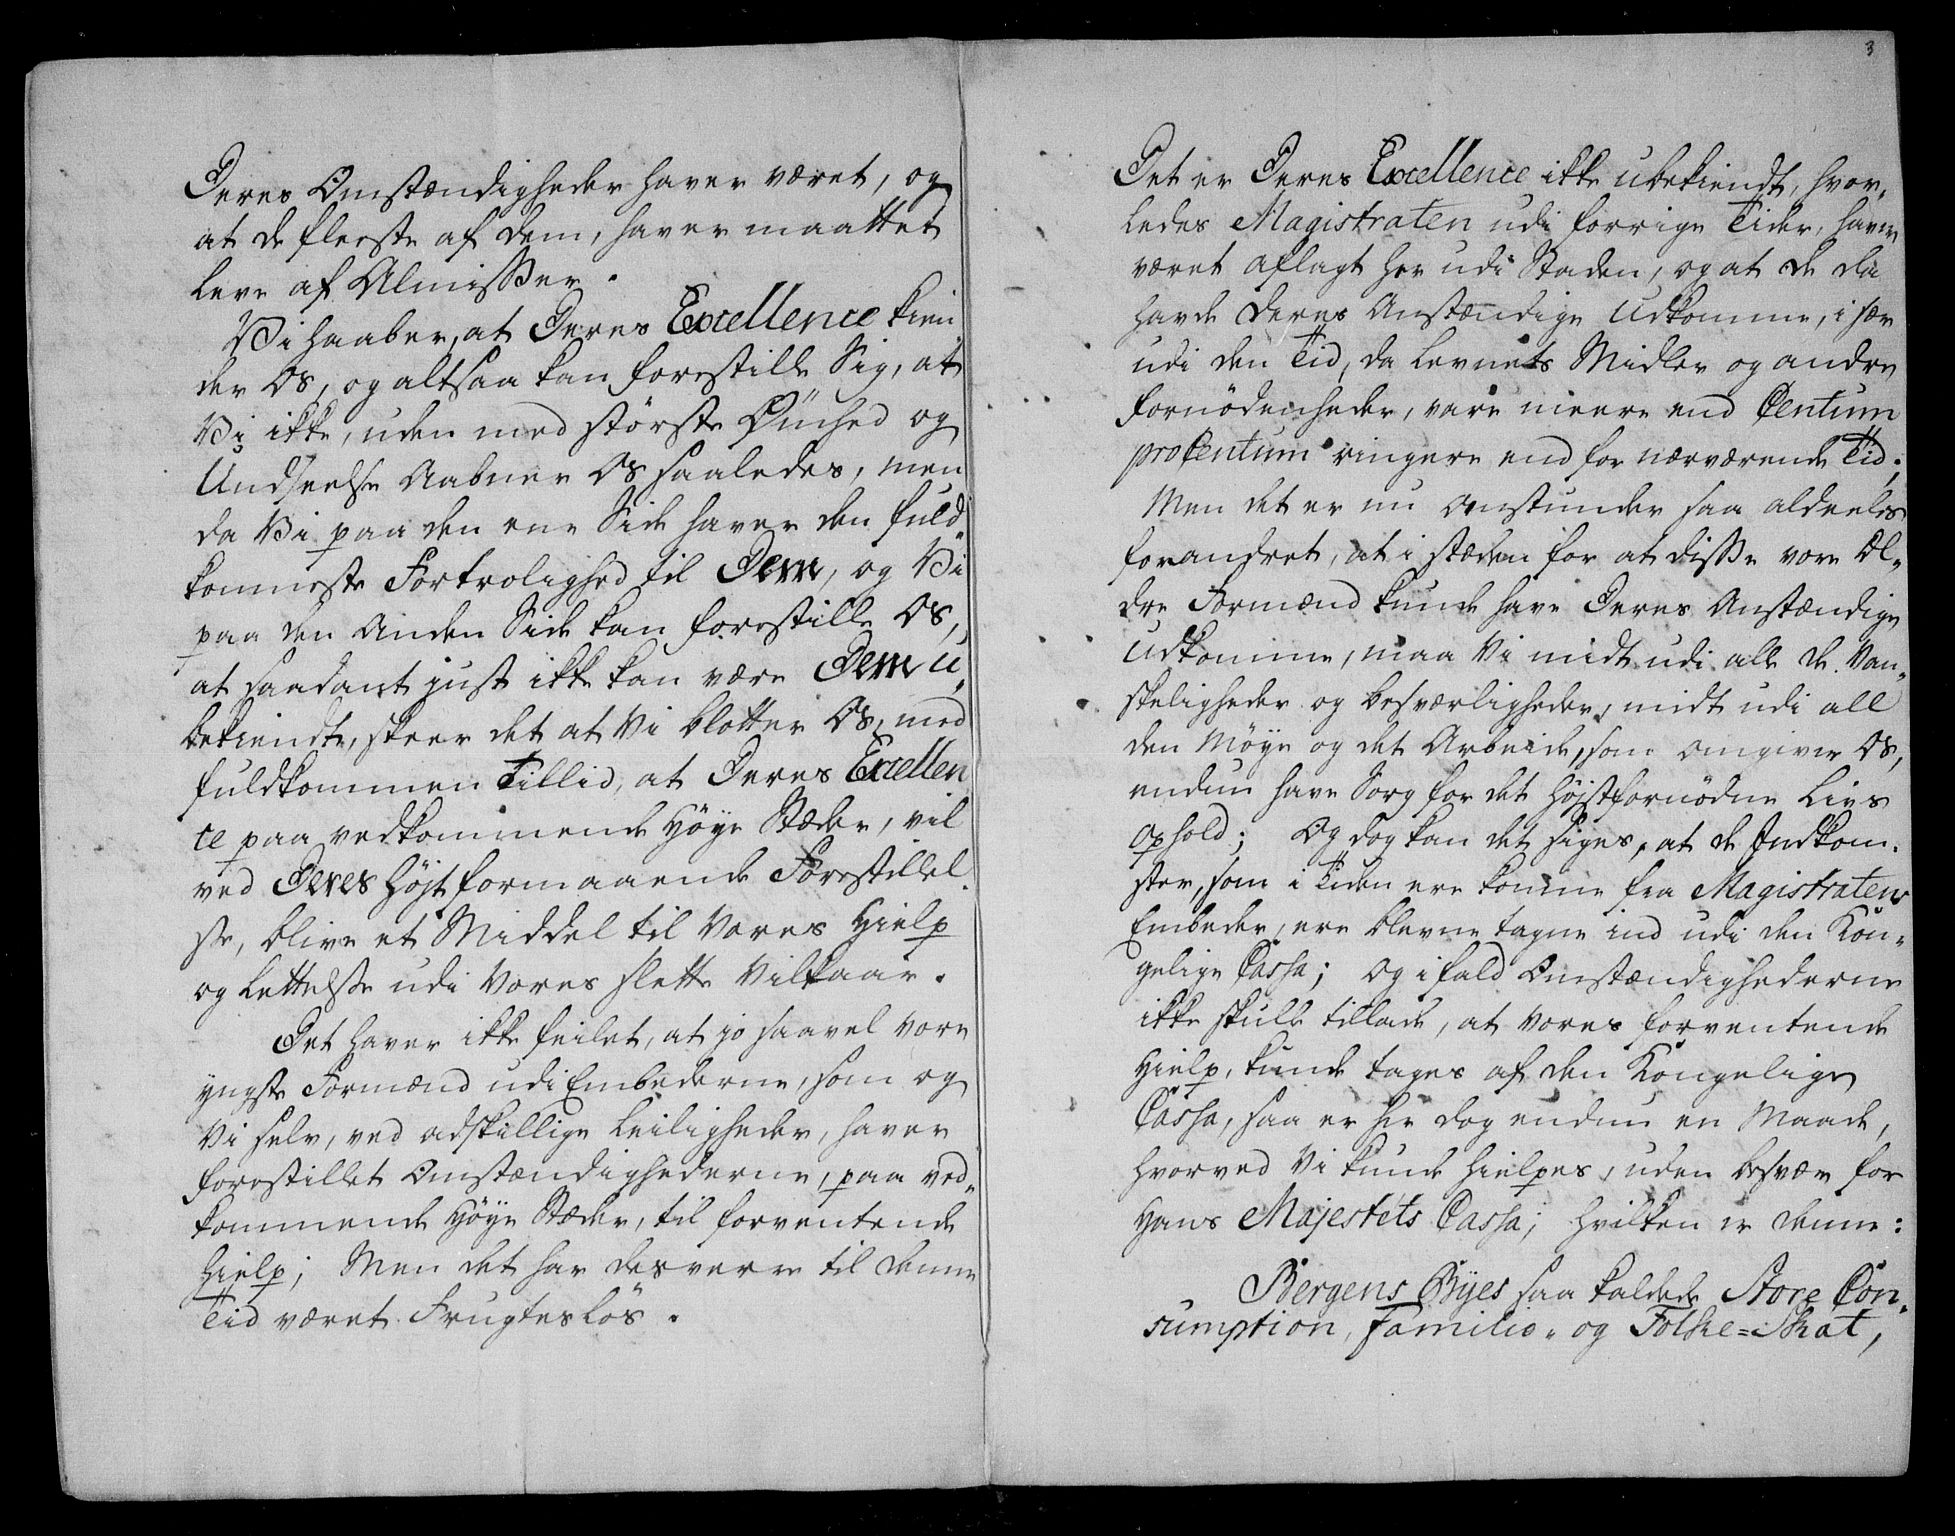 Deres Omstændigheder haver været, og
at de fleeste af dem, haver maattet
leve af Almisser.
Vi haaber, at Deres Excellence kien
der Os, og altsaa kan forestille Sig, at
Vi ikke, uden med störste Ømhed og
Undseelse Aabner Os saaledes, men
da Vi paa den ene Side haver den fuld„
komneste Fortrolighed til Dem, og Vi
paa den Anden Side kan forestille Os,
at saadant just ikke kan være Dem u„
bekiendt, skeer det at Vi blotter Os, med
fuldkommen Tillid, at Deres Excellen
ce paa vedkommende Høye Stæder, vil
ved Deres Højtformaaende Forestillel„
se, blive et Middel til Vores Hielp
og Lettelse udi Vores slette Vilkaar.
Det haver ikke feilet, at jo saavel Vore
yngste Formænd udi Embederne, som og
Vi selv, ved adskillige Leiligheder, haver
forestillet Omstændighederne, paa ved„
kommende Høye Stæder, til forventende
Hielp; Men det har desverre til denne
Tid været Frugteslös.
3
Det er Deres Excellence ikke ubekiendt, hvor„
ledes Magistraten udi forrige Tider, haver
været aflagt her udi Staden, og at de da
havde deres Anstændige Udkomme, i sær
udi den Tid, da Levnets Midler og andre
fornödenheder, vare meere end Centum
pro Centum ringere end for nærværende Tid;
Men det er nu omstunder saa aldeeles
forandret, at i stæden for at disse vore Æl„
dre Formænd kunde have Deres Anstændige
Udkomme, maa Vi midt udi alle de Van„
skeligheder og besværligheder, midt udi all
den Möye og det Arbeide, som omgiver Os,
endnu have Sorg for det Højstfornödne Livs
Ophold; Og dog kan det siges, at de Indkom„
ster, som i Tiden ere komne fra Magistratens
Embeder, ere blevne tagne ind udi den Kon„
gelige Cassa; Og ifald Omstændighederne
ikke skulle tillade, at Vores forventende
Hielp, kunde tages af den Kongelige
Cassa, saa er her dog endnu en Maade,
hvorved Vi kunde Hielpes, uden besvær for
Hans Majestets Cassa; Hvilken er denne:
Bergens Byes saa kaldede Store Con„
sumption, Familie„ og Folke=Skat,